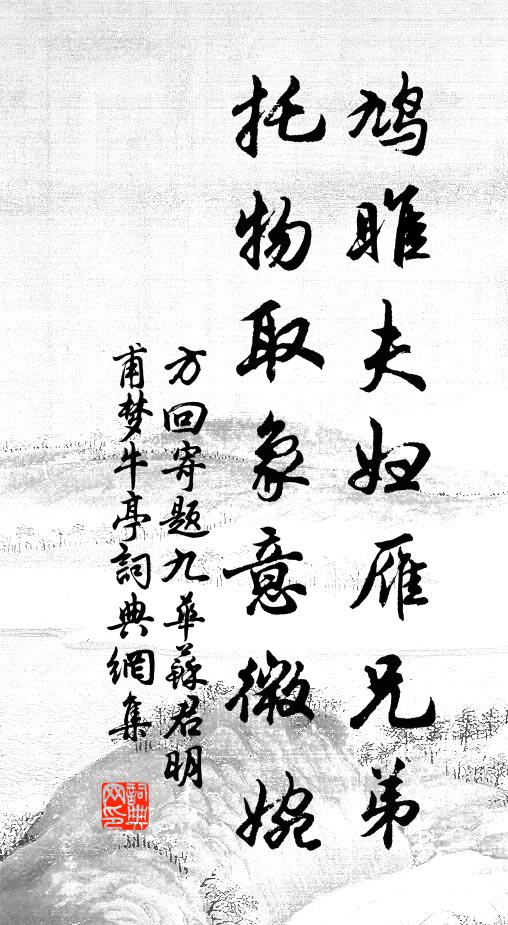 鸠雎夫妇雁兄弟
托物取象意微婉
方回寄题九华蘇君明
甫梦牛亭詞典網集
詞典
网印